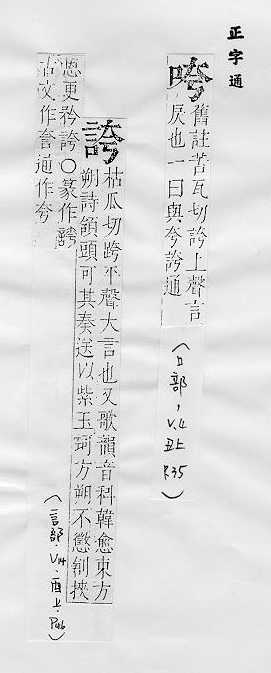 正字通
咵
舊註苦瓦切誇上聲言
戾也一曰與夸誇通
(口部，V.4
丑上
P.35)
誇
枯瓜切跨平聲大言也又歌韻音科韓愈東方
朔詩頷頭可其奏送以紫玉珂方朔不懲創挾
恩更矜誇○篆作
古文作通作夸
(言部．V.14．酉上．P.46)